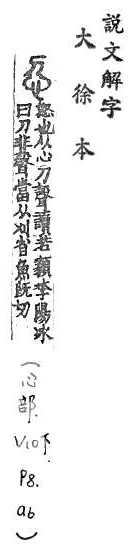 説文解字
大徐本
怒也从心刀聲讀若顡李陽冰
曰刀非聲當从刈省魚旣切
(心部. V10下. P8. ab)